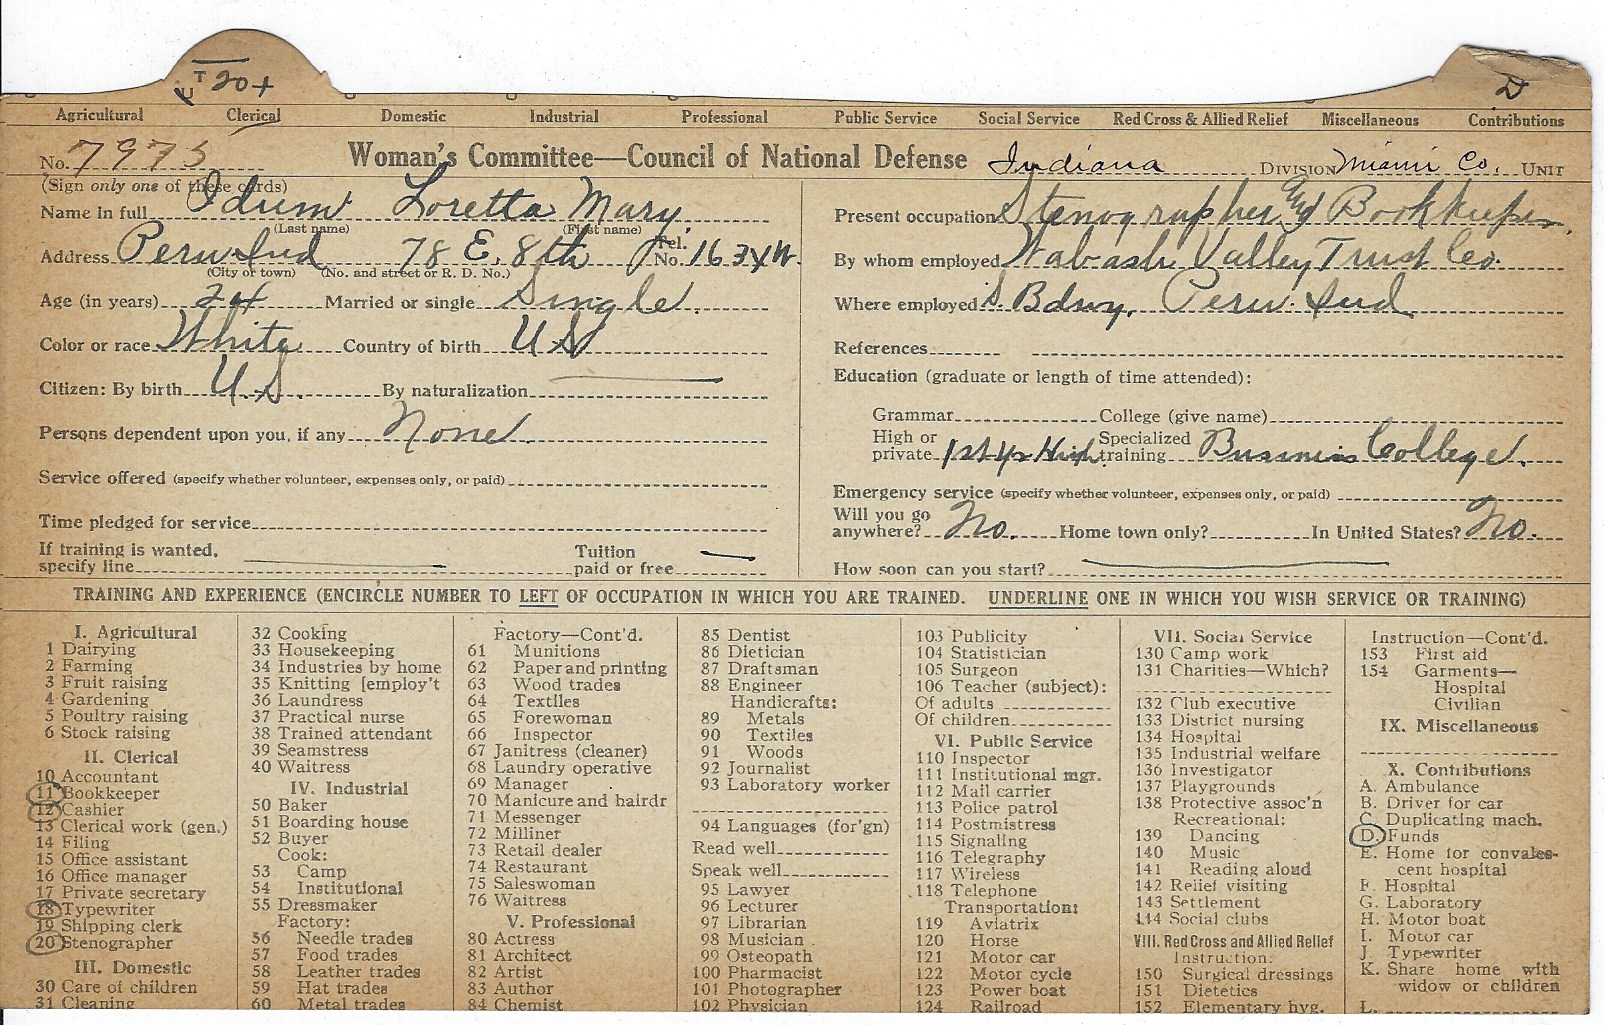 T 20+
U
D
Agricultural Clerical Domestic Industrial Professional Public Service Social Service Red Cross & Allied Relief Miscellaneous Contributions
No. 7975 Woman's Committee—Council of National Defense Indiana DIVISION Miami Co. UNIT
(Sign only one of these cards)
Name in full Idum Loretta Mary.
(Last name) (First name)
Address Peru Ind 78 E. 8th Tel. No. 163XW.
(City or town) (No. and street or R. D. No.)
Age (in years) 24 Married or single Single.
Color or race White Country of birth US
Citizen: By birth U.S. By naturalization
Persons dependent upon you, if any None.
Service offered (specify whether volunteer, expenses only, or paid)
Time pledged for service
If training is wanted, specify line Tuition paid or free
Present occupation Stenographer and Bookkeeper.
By whom employed Wabash Valley Trust Co.
Where employed S. Bdwy, Peru. Ind.
References
Education (graduate or length of time attended):
Grammar College (give name)
High or private 1st yr High. Specialized training Business College.
Emergency service (specify whether volunteer, expenses only, or paid)
Will you go anywhere? No. Home town only? In United States? No.
How soon can you start?
TRAINING AND EXPERIENCE (ENCIRCLE NUMBER TO LEFT OF OCCUPATION IN WHICH YOU ARE TRAINED. UNDERLINE ONE IN WHICH YOU WISH SERVICE OR TRAINING)
I. Agricultural
1 Dairying
2 Farming
3 Fruit raising
4 Gardening
5 Poultry raising
6 Stock raising
II. Clerical
10 Accountant
11 Bookkeeper
12 Cashier
13 Clerical work (gen.)
14 Filing
15 Office assistant
16 Office manager
17 Private secretary
18 Typewriter
19 Shipping clerk
20 Stenographer
III. Domestic
30 Care of children
31 Cleaning
32 Cooking
33 Housekeeping
34 Industries by home
35 Knitting [employ't
36 Laundress
37 Practical nurse
38 Trained attendant
39 Seamstress
40 Waitress
IV. Industrial
50 Baker
51 Boarding house
52 Buyer
Cook:
53 Camp
54 Institutional
55 Dressmaker
Factory:
56 Needle trades
57 Food trades
58 Leather trades
59 Hat trades
60 Metal trades
Factory—Cont'd.
61 Munitions
62 Paper and printing
63 Wood trades
64 Textiles
65 Forewoman
66 Inspector
67 Janitress (cleaner)
68 Laundry operative
69 Manager
70 Manicure and hairdr
71 Messenger
72 Milliner
73 Retail dealer
74 Restaurant
75 Saleswoman
76 Waitress
V. Professional
80 Actress
81 Architect
82 Artist
83 Author
84 Chemist
85 Dentist
86 Dietician
87 Draftsman
88 Engineer
Handicrafts:
89 Metals
90 Textiles
91 Woods
92 Journalist
93 Laboratory worker
94 Languages (for'gn)
Read well
Speak well
95 Lawyer
96 Lecturer
97 Librarian
98 Musician
99 Osteopath
100 Pharmacist
101 Photographer
102 Physician
103 Publicity
104 Statistician
105 Surgeon
106 Teacher (subject):
Of adults
Of children
VI. Public Service
110 Inspector
111 Institutional mgr.
112 Mail carrier
113 Police patrol
114 Postmistress
115 Signaling
116 Telegraphy
117 Wireless
118 Telephone
Transportation:
119 Aviatrix
120 Horse
121 Motor car
122 Motor cycle
123 Power boat
124 Railroad
VII. Social Service
130 Camp work
131 Charities—Which?
132 Club executive
133 District nursing
134 Hospital
135 Industrial welfare
136 Investigator
137 Playgrounds
138 Protective assoc'n
Recreational:
139 Dancing
140 Music
141 Reading aloud
142 Relief visiting
143 Settlement
144 Social clubs
VIII. Red Cross and Allied Relief
Instruction:
150 Surgical dressings
151 Dietetics
152 Elementary hyg.
Instruction—Cont'd.
153 First aid
154 Garments—
Hospital
Civilian
IX. Miscellaneous
X. Contributions
A. Ambulance
B. Driver for car
C. Duplicating mach.
D. Funds
E. Home for convales-
cent hospital
F. Hospital
G. Laboratory
H. Motor boat
I. Motor car
J. Typewriter
K. Share home with
widow or children
L.